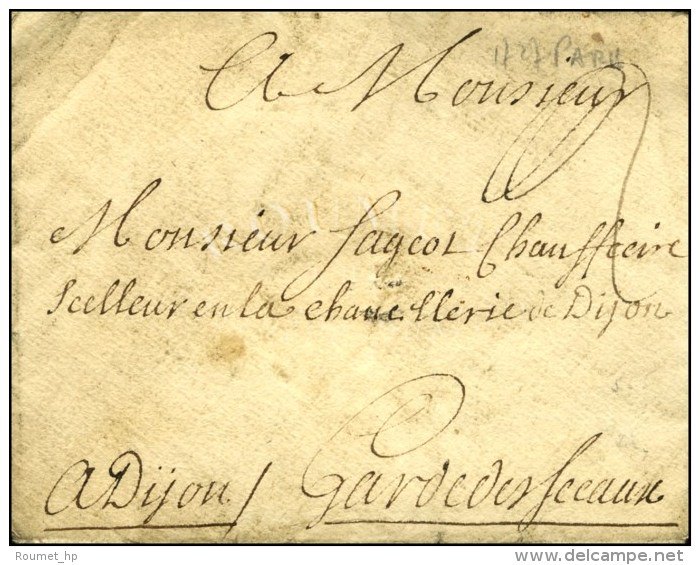 1727 PARIS
A Monsieur
Monsieur Sageot Chauffecire
Scelleur en la chancellerie de Dijon
A Dijon / Garde des Sceaux
Roumet_hp
delcampe.net